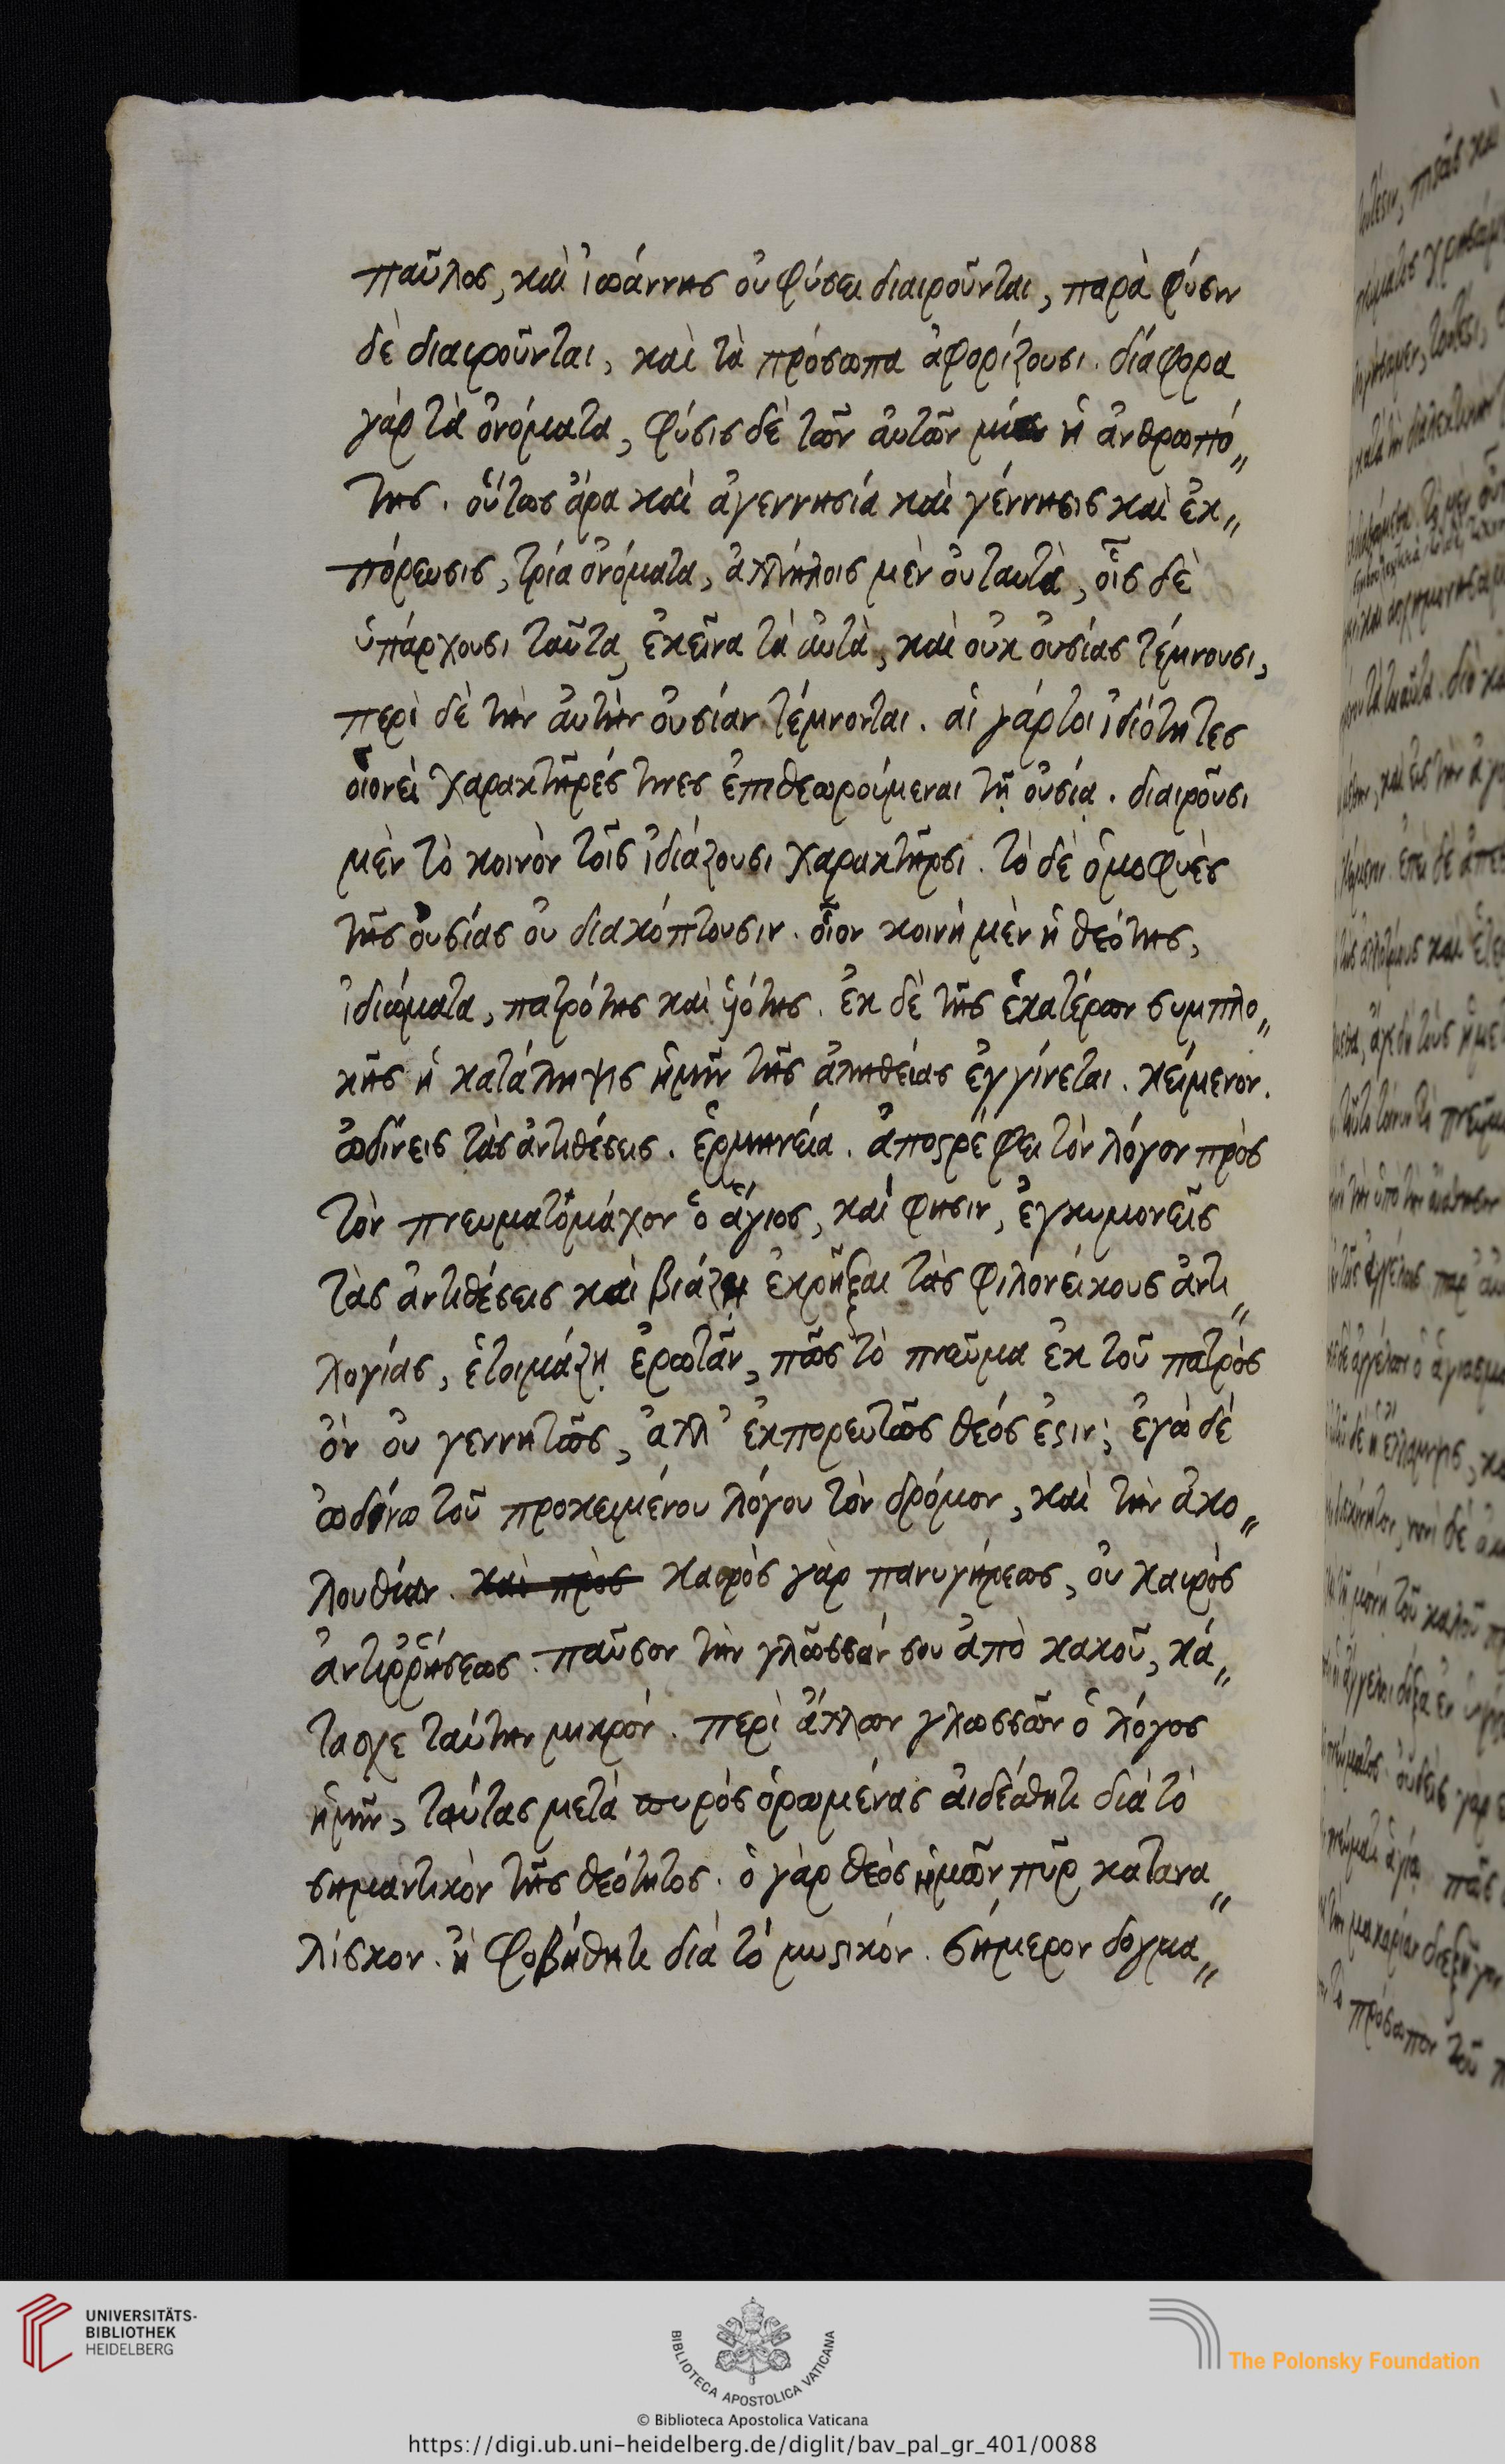 παῦλος, καὶ ἰωάννης οὐ φύσει διαιροῦνται, παρὰ φύσιν
δὲ διαιροῦνται, καὶ τὰ πρόσωπα ἀφορίζουσι. διάφορα
γὰρ τὰ ὀνόματα, φύσις δὲ τῶν αὐτῶν μία ἡ ἀνθρωπό〃
της. οὕτως ἄρα καὶ ἀγεννησία καὶ γέννησις καὶ ἐκ〃
πόρευσις, τρία ὀνόματα, ἀλλήλοις μὲν οὐ ταυτὰ, οἷς δὲ
ὑπάρχουσι ταῦτα, ἐκεῖνα τὰ αὐτὰ, καὶ οὐκ οὐσίας τέμνουσι,
περὶ δὲ τὴν αὐτὴν οὐσίαν τέμνονται. αἱ γάρτοι ἰδιότητες
οἱονεὶ χαρακτῆρές τινες ἐπιθεωρούμεναι τῇ οὐσίᾳ. διαιροῦσι
μὲν τὸ κοινὸν τοῖς ἰδιάζουσι χαρακτῆρσι. τὸ δὲ ὁμοφυὲς
τῆς οὐσίας οὐ διακόπτουσιν. οἷον κοινὴ μὲν ἡ θεότης,
ἰδιώματα, πατρότης καὶ υἱότης. ἐκ δὲ τῆς ἑκατέρων συμπλο〃
κῆς ἡ κατάληψις ἡμῖν τῆς ἀληθείας ἐγγίνεται. κείμενον.
ὠδίνεις τὰς ἀντιθέσεις. ἑρμηνεία. ἀποϛρέφει τὸν λόγον πρὸς
τὸν πνευματομάχον ὁ ἅγιος, καί φησιν, ἐγκυμονεῖς
τὰς ἀντιθέσεις καὶ βιάζῃ ἐκρῆξαι τὰς φιλονείκους ἀντι〃
λογίας, ἑτοιμάζῃ ἐρωτᾶν, πῶς τὸ πνεῦμα ἐκ τοῦ πατρὸς
ὂν οὐ γεννητῶς, ἀλλ' ἐκπορευτῶς θεός ἐϛιν; ἐγὼ δὲ
ὠδίνω τοῦ προκειμένου λόγου τὸν δρόμον, καὶ τὴν ἀκο〃
λουθίαν. καὶ πρὸς καιρὸς γὰρ πανυγήρεως, οὐ καιρὸς
ἀντιῤῥήσεως. παῦσον τὴν γλῶσσάν σου ἀπὸ κακοῦ, κά〃
τασχε ταύτην μικρόν. περὶ ἄλλων γλωσσῶν ὁ λόγος
ἡμῖν, ταύτας μετὰ πυρὸς ὁρωμένας αἰδέσθητι διὰ τὸ
σημαντικὸν τῆς θεότητος. ὁ γὰρ θεὸς ἡμῶν πῦρ κατανα〃
λίσκον. ἢ φοβήθητι διὰ τὸ μυϛικόν. σήμερον δογμα〃
UNIVERSITÄTS-
BIBLIOTHEK
HEIDELBERG
BIBLIOTECA APOSTOLICA VATICANA
The Polonsky Foundation
© Biblioteca Apostolica Vaticana
https://digi.ub.uni-heidelberg.de/diglit/bav_pal_gr_401/0088